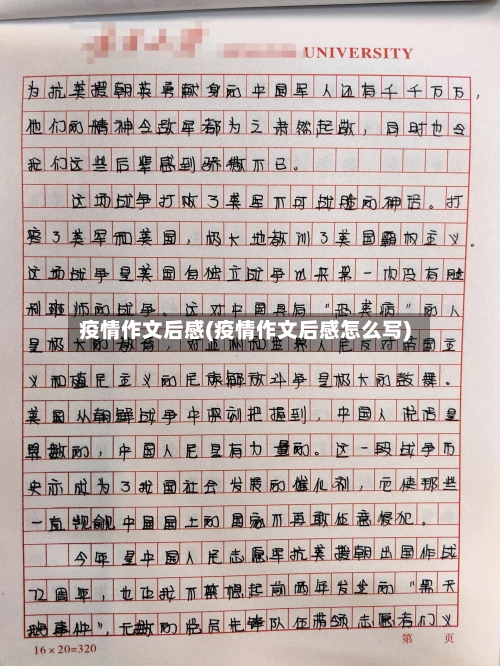 UNIVERSITY
为抗美援朝英勇献身的中国军人还有千千万万,
他们的精神令敌军都为之肃然起敬,同时也令
我们这些后辈感到骄傲不已。
这场战争打败了美军不可战胜的神话。打
了美军和美国,极大地教训了美国霸权主义。
这场战争是美国自独立战争以来第一次没有胜
利班师的战争。这对中国具有“恐美病”的人
是极大的教育
疫情作文后感(疫情作文后感怎么写)
义和殖民主义的民族解放斗争是极大的鼓舞。
美国从朝鲜战争中深刻把握到,中国人说话是
算数的,中国人民是有力量的。这一段战争历
史亦成为了我国社会发展的催化剂,它使那些
一直觊觎中国国土的国家不再敢任意侵犯。
今年是中国人民志愿军抗美援朝出国作战
72周年,也让我不禁想起前两年发生的“黑天
鹅事件”,无数的党员先锋队伍带领志愿者们义
16×20=320
第 页